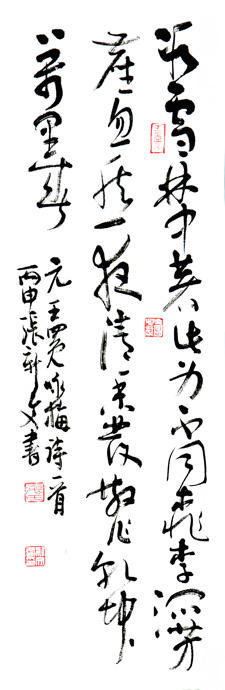 冰雪林中著此身不同桃李混芳
尘忽然一夜清香发散作乾坤
万里春
元王冕咏梅诗一首
丙申张新文书